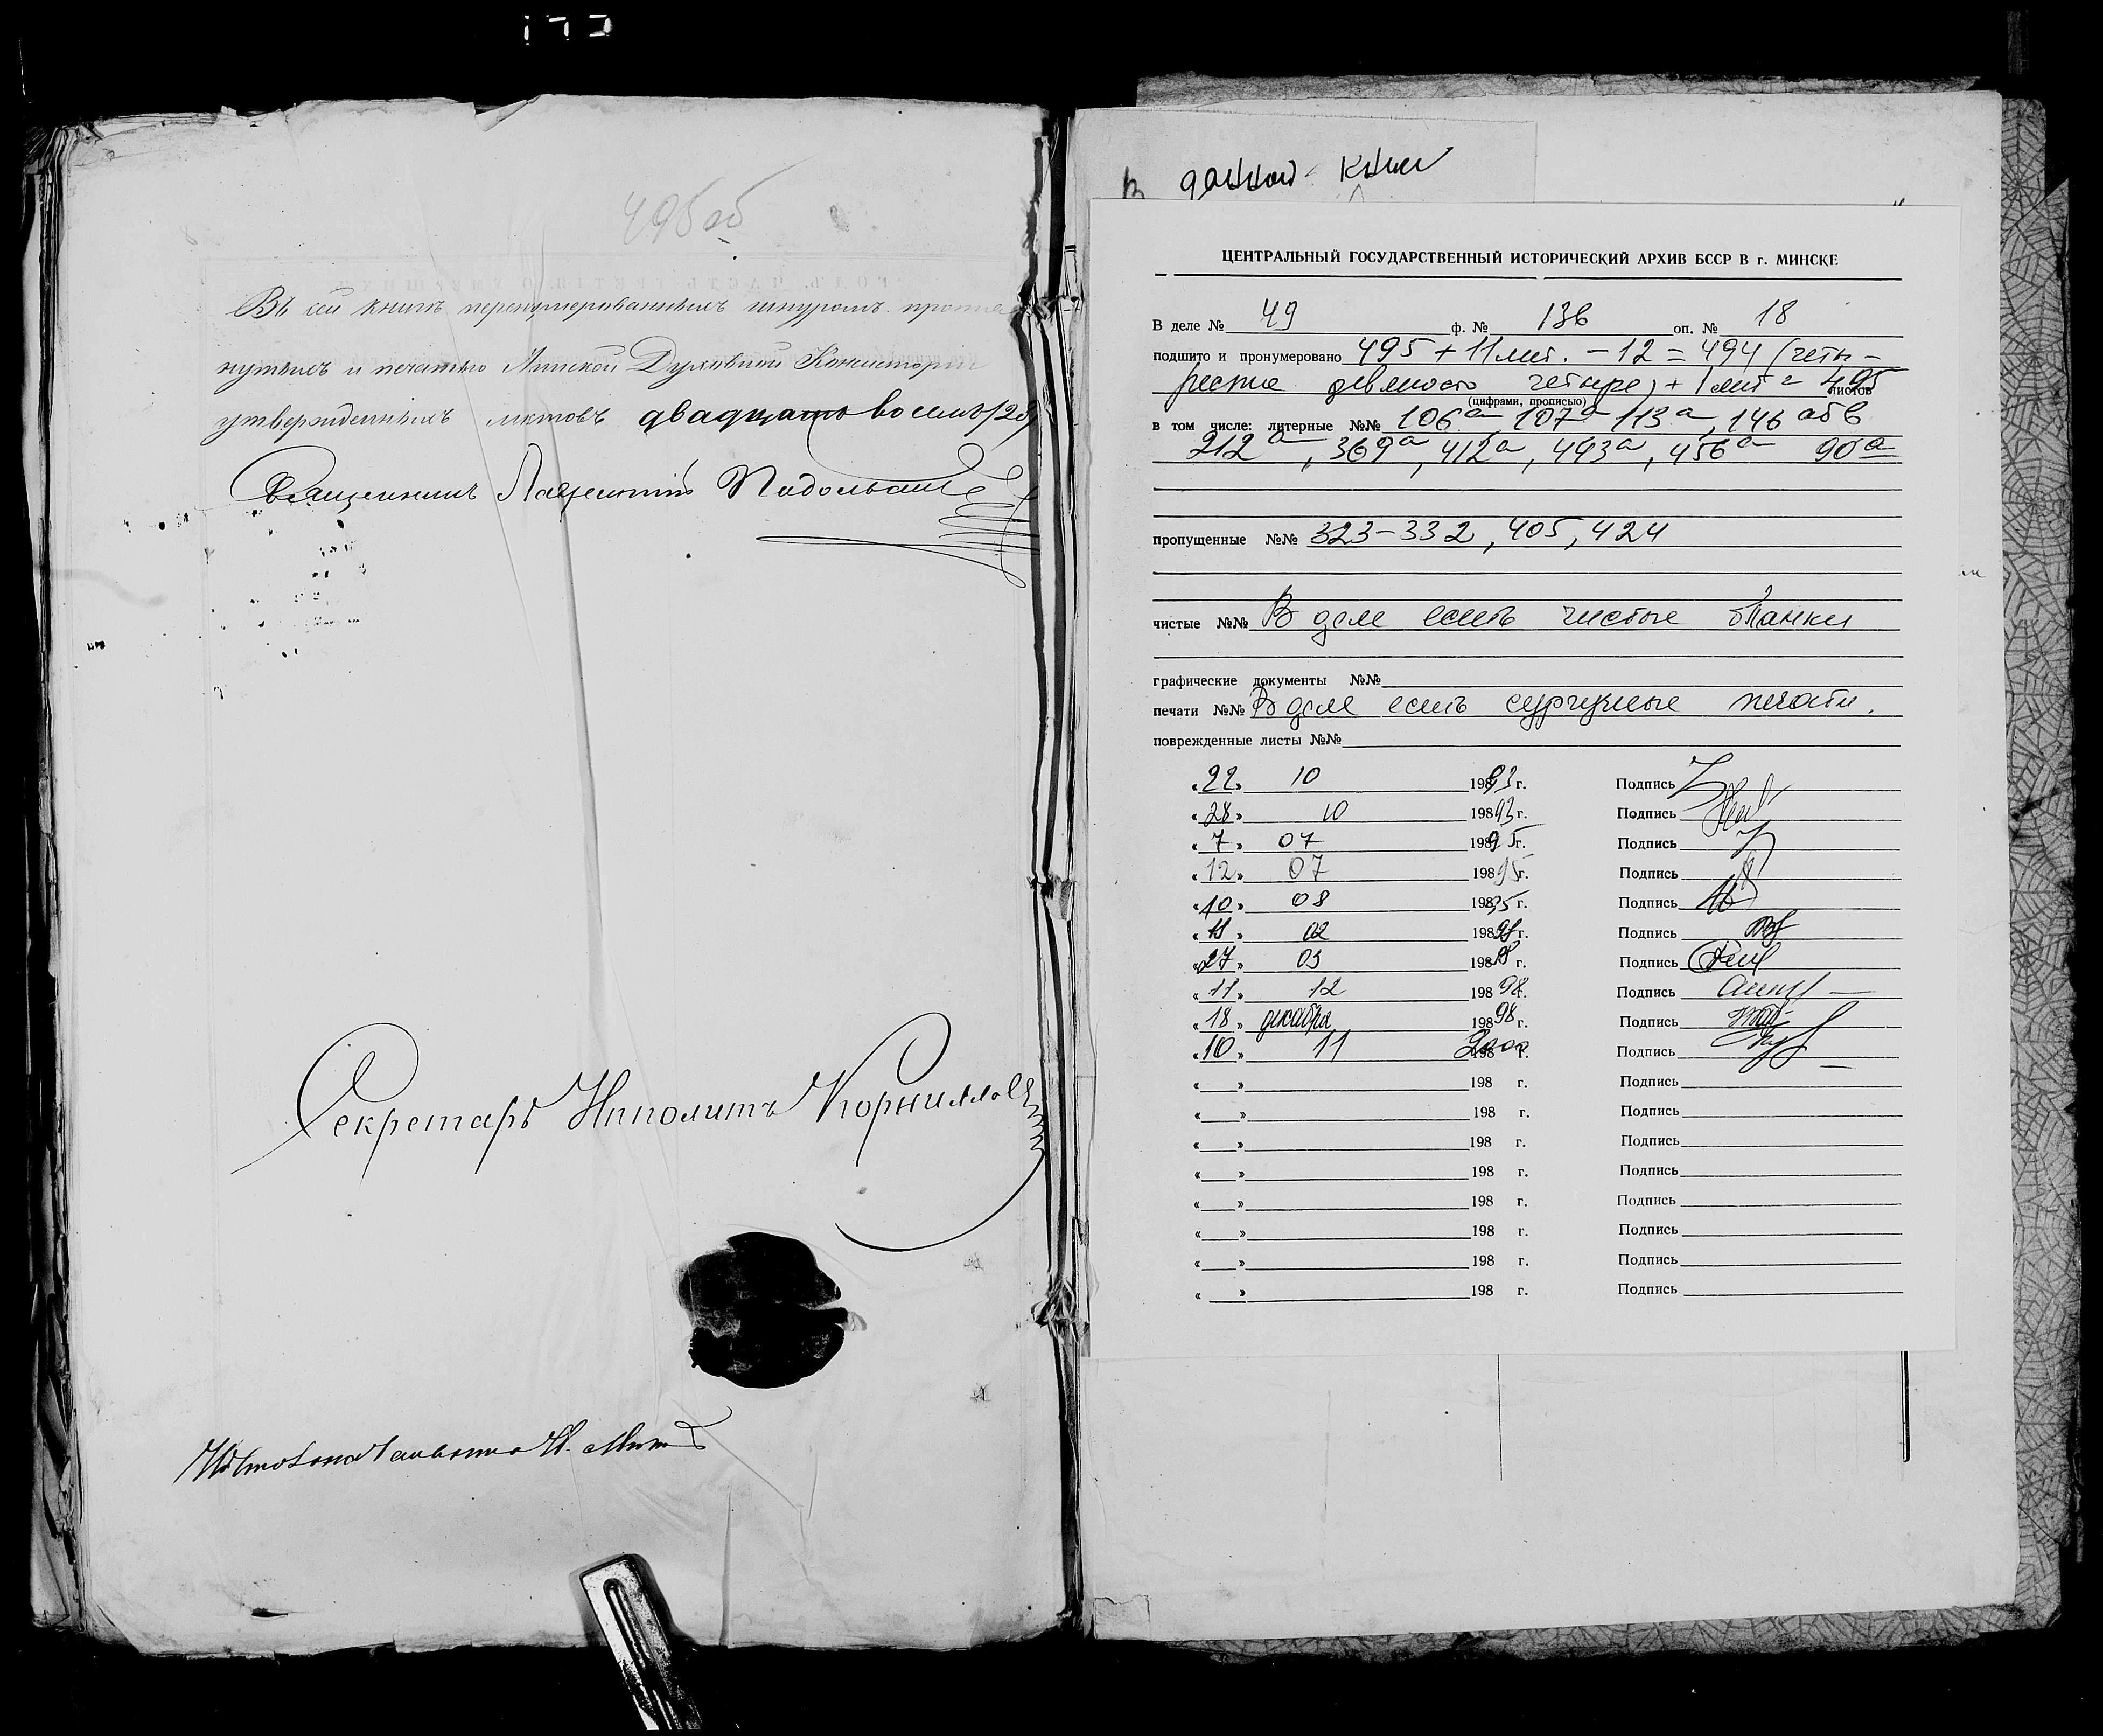 495 об
Въ сей книгѣ перенумерованныхъ шнуромъ
нутыхъ и печатью Минской Духовной Консисторіи
утвержденныхъ листовъ двадцать восемь /28/
Священникъ
Секретарь Ипполитъ
В данной книг
ЦЕНТРАЛЬНЫЙ ГОСУДАРСТВЕННЫЙ ИСТОРИЧЕСКИЙ АРХИВ БССР В г. МИНСКЕ
В деле № 49 ф. № 136 оп. № 18
подшито и пронумеровано 495 + 11 лит. - 12 = 494 (четы-
реста девяносто четыре) + 1 лит = 495 листов
(цифрами, прописью)
в том числе: литерные №№ 106а, 107а 113а, 146 абв
212а, 369а, 412а, 443а, 456а 90а
пропущенные №№ 323-332, 405, 424
чистые №№ В деле есть чистые бланки
графические документы №№
печати №№ В деле есть сургучные печати.
поврежденные листы №№
«22» 10 19893 г. Подпись
«28» 10 19893 г. Подпись
«7» 07 19895 г. Подпись
«12» 07 19895 г. Подпись
«10» 08 19895 г. Подпись
02 198 г. Подпись
«27» 03 198 г. Подпись
«11» 12 19898 г. Подпись
«18» декабря 19898 г. Подпись
«10» 11 2000 198 г. Подпись
« » 198 г. Подпись
« » 198 г. Подпись
« » 198 г. Подпись
« » 198 г. Подпись
« » 198 г. Подпись
« » 198 г. Подпись
« » 198 г. Подпись
« » 198 г. Подпись